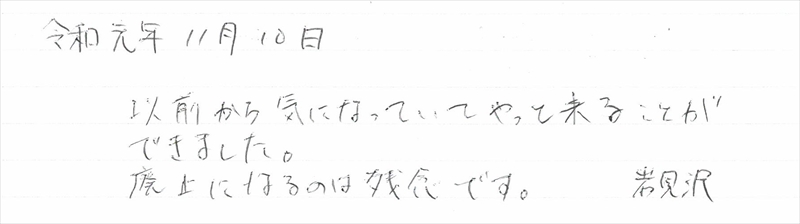 令和元年 11月10日
以前から気になっていてやっと来ることが
できました。
廃止になるのは残念です。 岩見沢